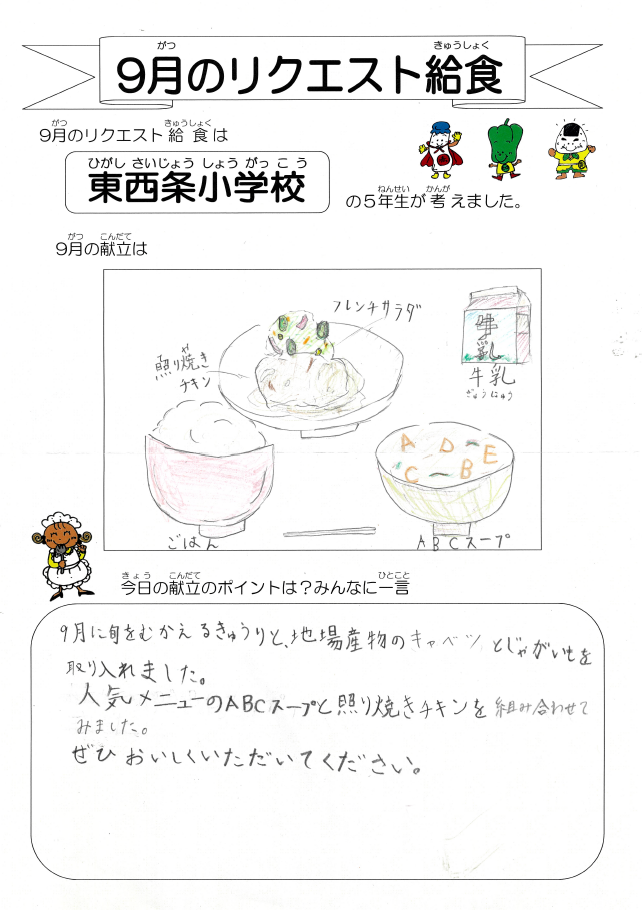 9月のリクエスト給食
がつ きゅうしょく
9月のリクエスト給食は
がつ きゅうしょく
東西条小学校
ひがし さいじょう しょう がっ こう
の5年生が考えました。
ねんせい かんが
9月の献立は
がつ こんだて
フレンチサラダ
照り焼き
や
チキン
牛乳
牛乳
ぎゅうにゅう
A D E
C B
ごはん
ABCスープ
今日の献立のポイントは?みんなに一言
きょう こんだて ひとこと
9月に旬をむかえるきゅうりと、地場産物のキャベツとじゃがいもを
取り入れました。
人気メニューのABCスープと照り焼きチキンを組み合わせて
みました。
ぜひおいしくいただいてください。